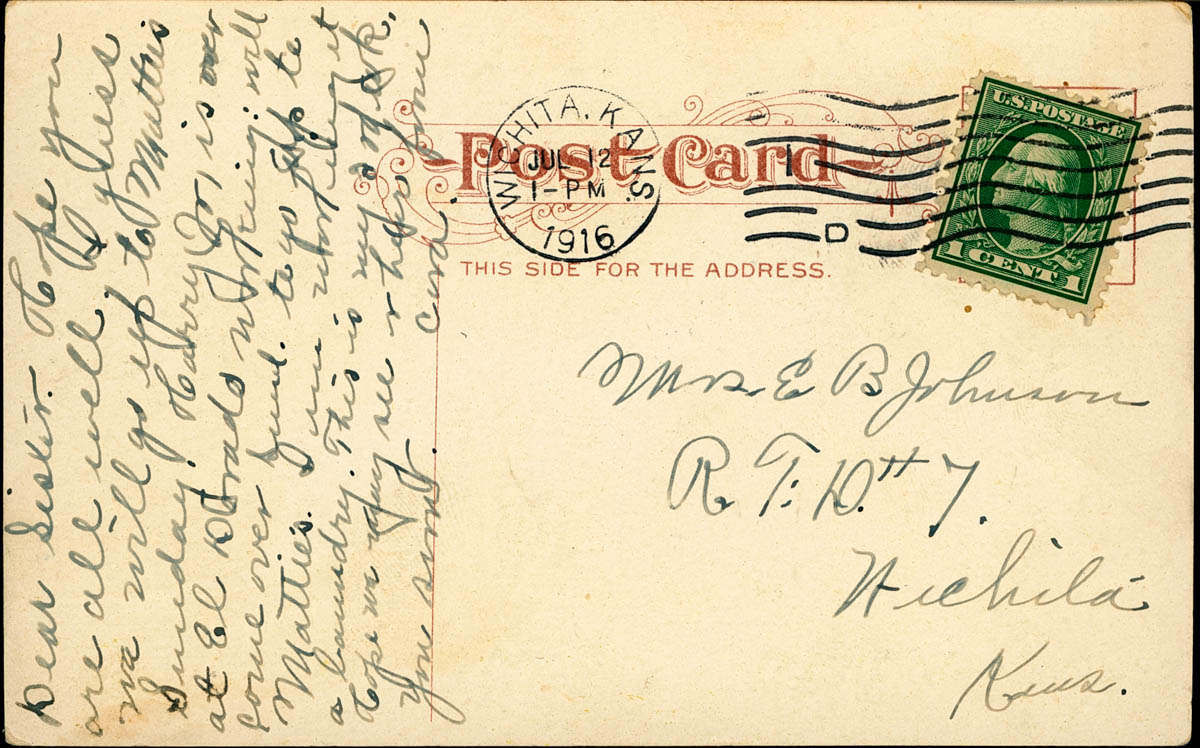 Dear Sister. Hope you
are all well I guess
we will go up to Matties
Sunday. Harry is over
at El Dorado working will
come over Sund. to go up to
Matties. I am working at
a laundry. This is my 2nd wk.
Hope we may see & hear from
you soon.
Cora.
WICHITA, KANS.
JUL 12
1-PM
1916
1
D
Post Card
THIS SIDE FOR THE ADDRESS.
U.S. POSTAGE
1 CENT 1
Mrs. E B Johnson
R. F. D. # 7.
Wichita
Kans.